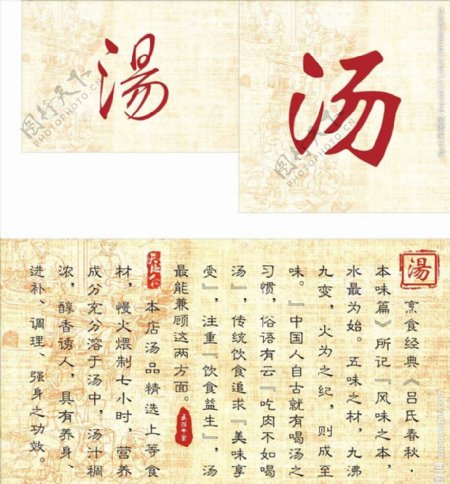 湯
汤
图行天下
PHOTOPHOTO.CN
图行天下
PHOTOPHOTO.CN
湯
烹食经典《吕氏春秋·
本味篇》所记『风味之本，
水最为始。五味之材，九沸
九变，火为之纪，则成至
味。』中国人自古就有喝汤之
习惯，俗语有云『吃肉不如喝
汤』，传统饮食追求『美味享
受』，注重『饮食益生』，汤
最能兼顾这两方面。
本店汤品精选上等食
材，慢火煨制七小时，营养
成分充分溶于汤中，汤汁稠
浓，醇香诱人，具有养身、
进补、调理、强身之功效。